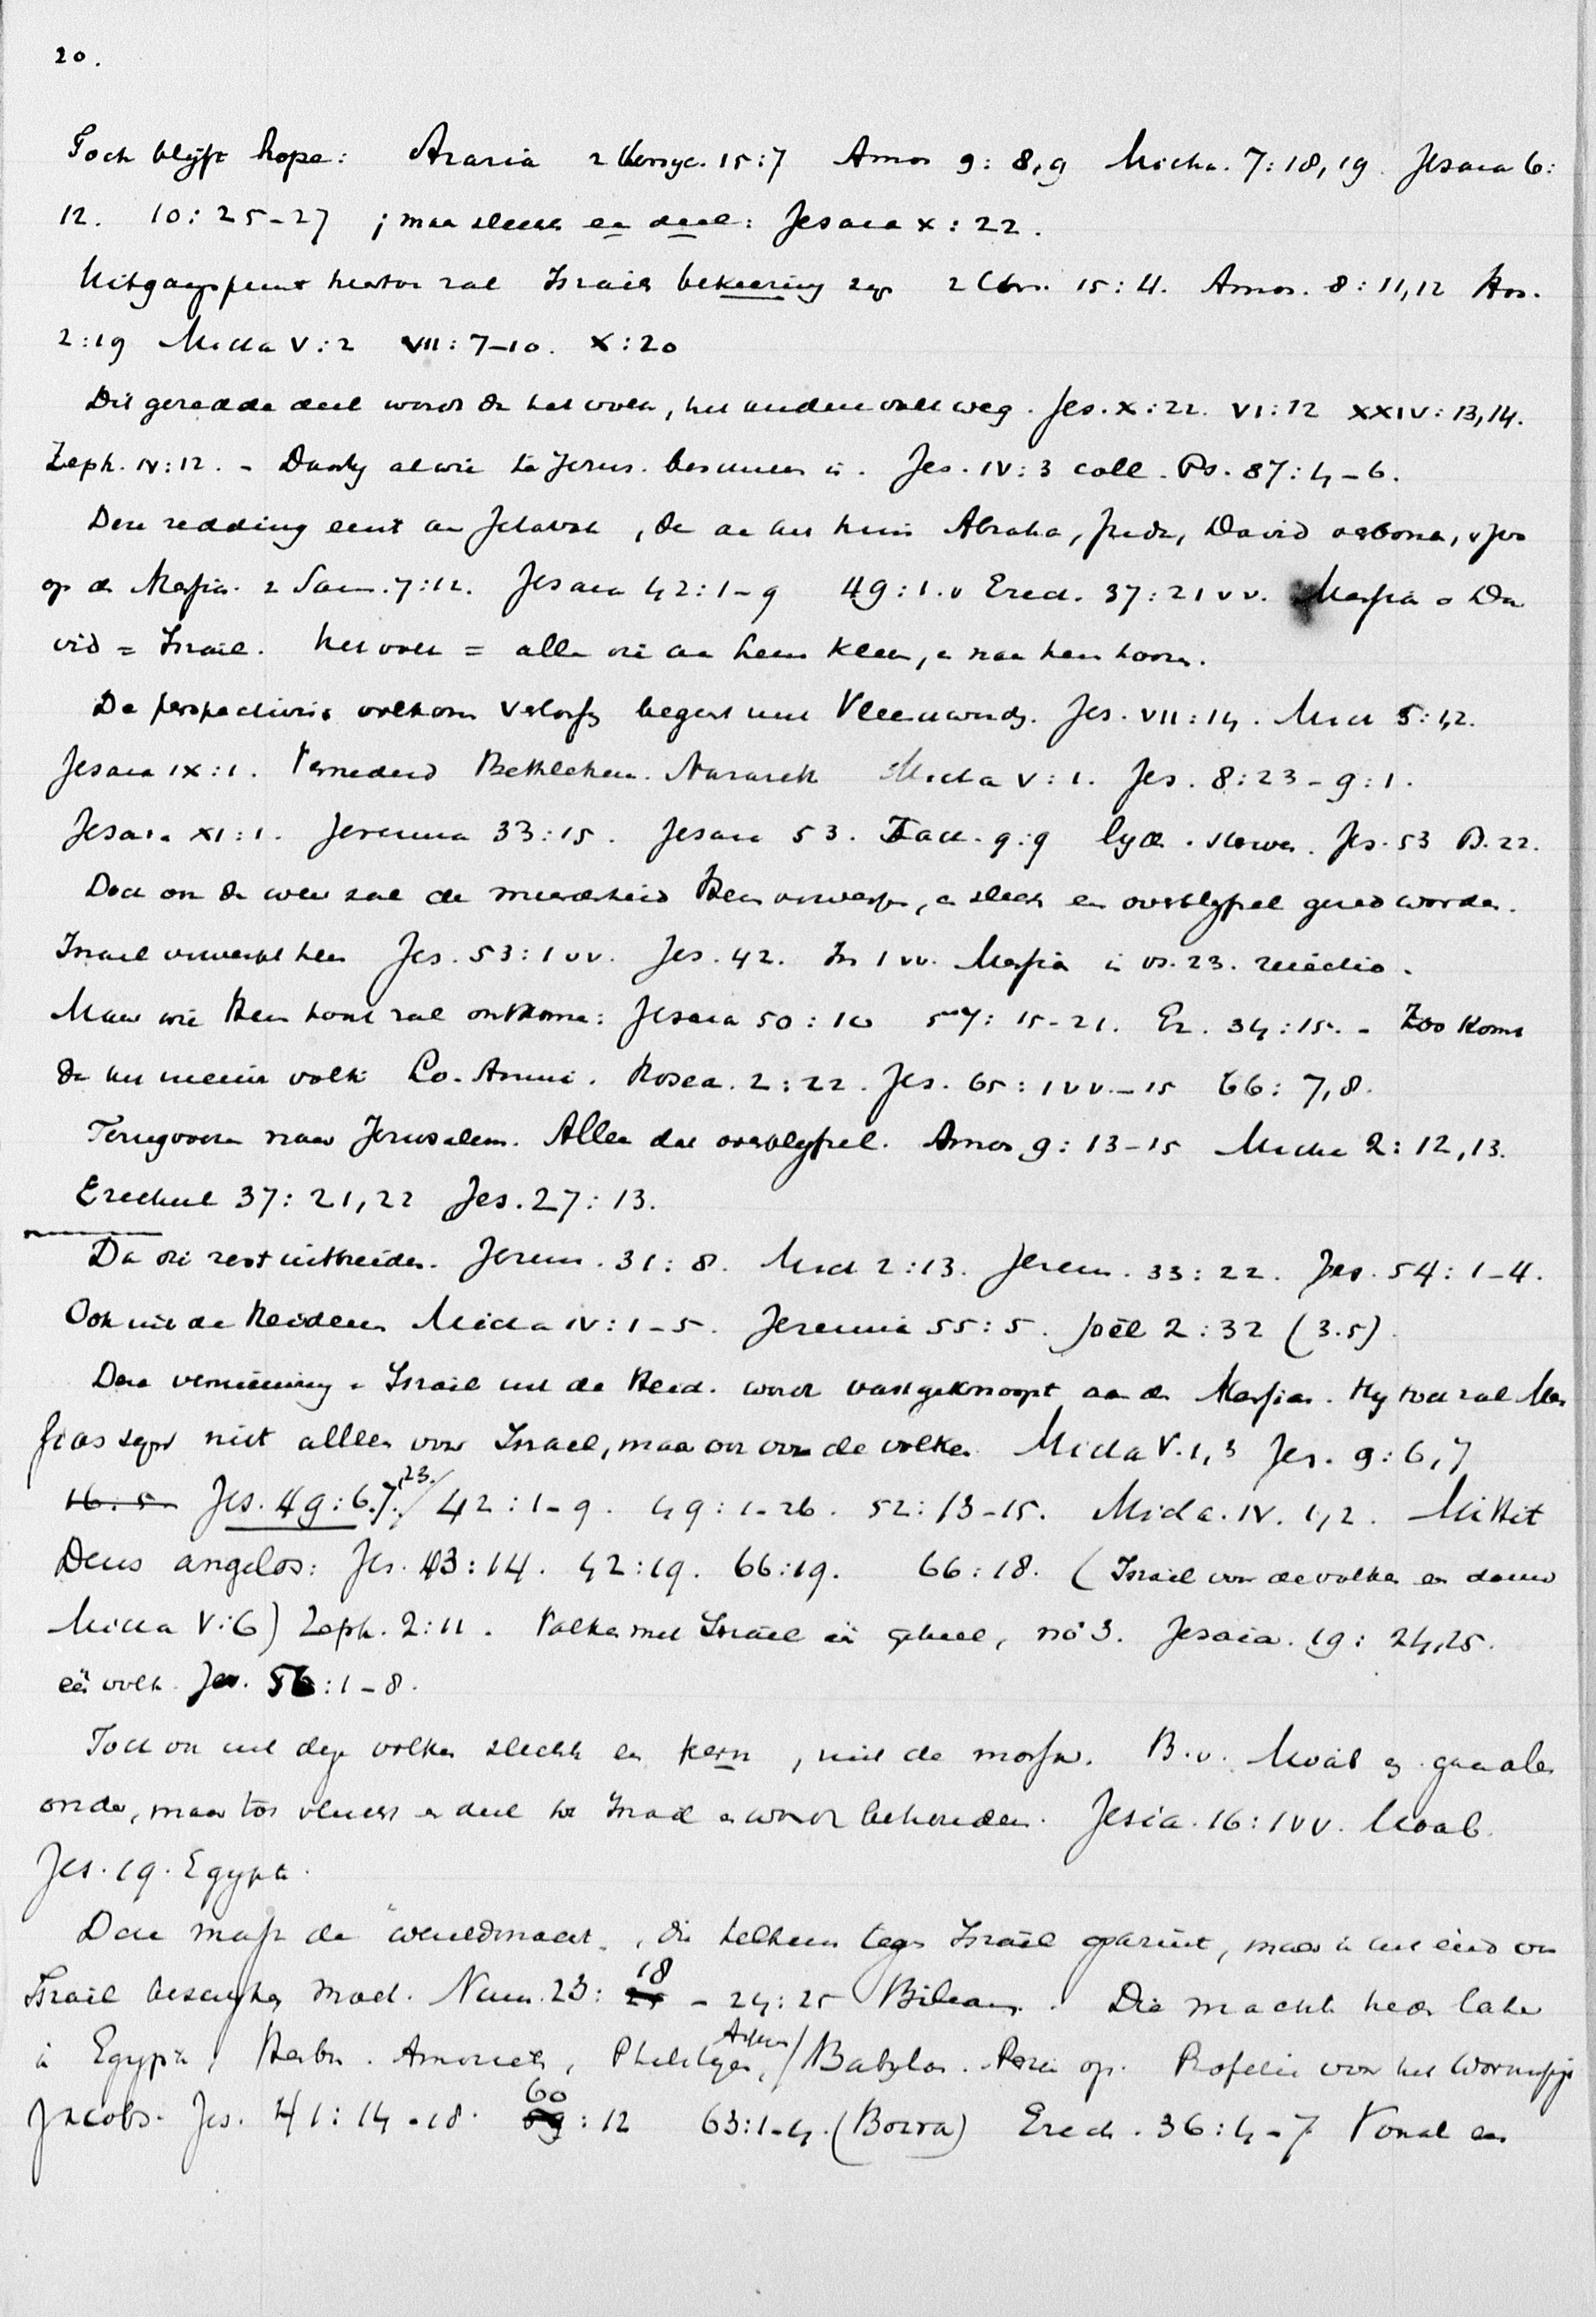 20.
Toch blijft hope: Azaria 2 Kronyc. 15:7 Amos 9: 8,9 Micha. 7:18,19. Jesaia 6:
12. 10: 25-27 ; maar slechts een deel: Jesaia X: 22.
Uitgangspunt hiertoe zal Israels bekeering zyn 2 Chr. 15:4. Amos. 8:11,12 Hos.
2:19 Micha V:2 VII: 7-10. X:20
Dit geredde deel wordt dn het volk, het andere valt weg. Jes. X:22. VI:12 XXIV: 13,14.
Zeph. IV:12. - Daarby al wie te Jerus. beschreven is. Jes. IV:3 coll. Ps. 87:4-6.
Deze redding leunt aan Jehovah, die aan het huis Abraha, Juda, David verbonden,
op de Messias. 2 Sam. 7:12. Jesaia 42:1-9 49:1.v Ezech. 37:21vv. Messias = Da
vid = Israël. Het volk = alle die aan hem kleven, en naar hem hooren.
De perspectivis volkomen verlossing begint met Vleeschwording. Jes. VII:14. Mich 5:1,2.
Jesaia IX:1. Vernederd Bethlehem. Nazareth Micha V:1. Jes. 8:23-9:1.
Jesaia XI:1. Jeremia 33:15. Jesaia 53. Zach. 9:9 lyden. sterven. Jes. 53 Ps. 22.
Doch ook dn weer zal de meerderheid Hem verwerpen, en slechts een overblyfsel gered worden.
Israel verwerpt hem Jes. 53:1vv. Jes. 42. In 1vv. Messias in vs. 23.
Maar wie Hem hoort zal ontkomen: Jesaia 50:10 57: 15-21. Ez. 34:15. - Zoo komt
dn het nieuwe volk Lo-Ammi. Hosea. 2:22. Jes. 65:1vv.-15 66: 7,8.
Terugvoeren naar Jerusalem. Alleen dat overblyfsel. Amos 9: 13-15 Micha 2: 12,13.
Ezechiel 37: 21,22 Jes. 27:13.
Dan die rest uitbreiden. Jerem. 31:8. Mich 2:13. Jerem. 33:22. Jes. 54:1-4.
Ook uit de Heidenen Micha IV:1-5. Jeremia 55:5. Joël 2:32 (3.5).
Deze vernieuwing v Israel uit de Heid. wordt vastgeknoopt aan den Messias. Hy toch zal Mes
sias zyn niet alleen voor Israel, maar ook voor de volken Micha V.1,3 Jes. 9:6,7
16:5 Jes. 49:6.7.,23./ 42:1-9. 49:1-26. 52:13-15. Micha. IV. 1,2. Mittit
Deus angelos: Jes. 43:14. 42:19. 66:19. 66:18. (Israel voor de volken een dauw
Micha V:6) Zeph. 2:11. Volken met Israël één geheel, no 3. Jesaia. 19: 24,25.
één volk. Jes. 56:1-8.
Toch ook uit deze volken slechts een kern, niet de massa. B.v. Moab gaat
onder, maar toch vlucht een deel tot Israel en wordt behouden. Jesia. 16:1vv. Moab.
Jes. 19. Egypte.
Deze massa de "wereldmacht", die telkens tegen Israël opkruit, maar in het eind voor
Israël bezwyken moet. Num. 23: 18 - 24:25 Bileam. Die macht treedt later
in Egypte, Amoriet, Philistynen, Assur/ Babylon. Perzië op. Profetie voor het wormpje
Jacobs. Jes. 41:14-18. 60:12 63:1-4. (Bozra) Ezech. 36:4-7 Vooral een